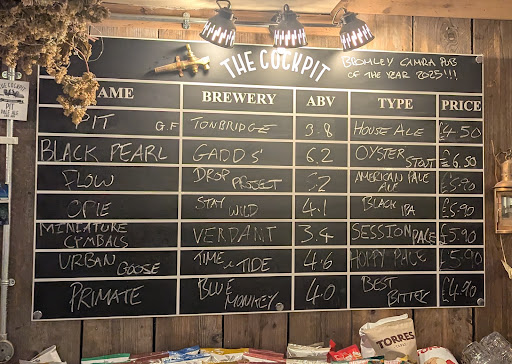 THE COCKPIT
BROMLEY CAMRA PUB
OF THE YEAR 2025!!!
NAME BREWERY ABV TYPE PRICE
PIT G.F TONBRIDGE 3.8 HOUSE ALE £4.50
BLACK PEARL GADDS' 6.2 OYSTER STOUT £6.50
FLOW DROP PROJECT AMERICAN PALE ALE £5.90
STAY WILD 4.1 BLACK IPA £5.90
MINIATURE CYMBALS VERDANT 3.4 SESSION PALE £5.90
URBAN GOOSE TIME & TIDE 4.6 HOPPY PALE £5.90
PRIMATE BLUE MONKEY 4.0 BEST BITTER £4.90
PIT
TORRES